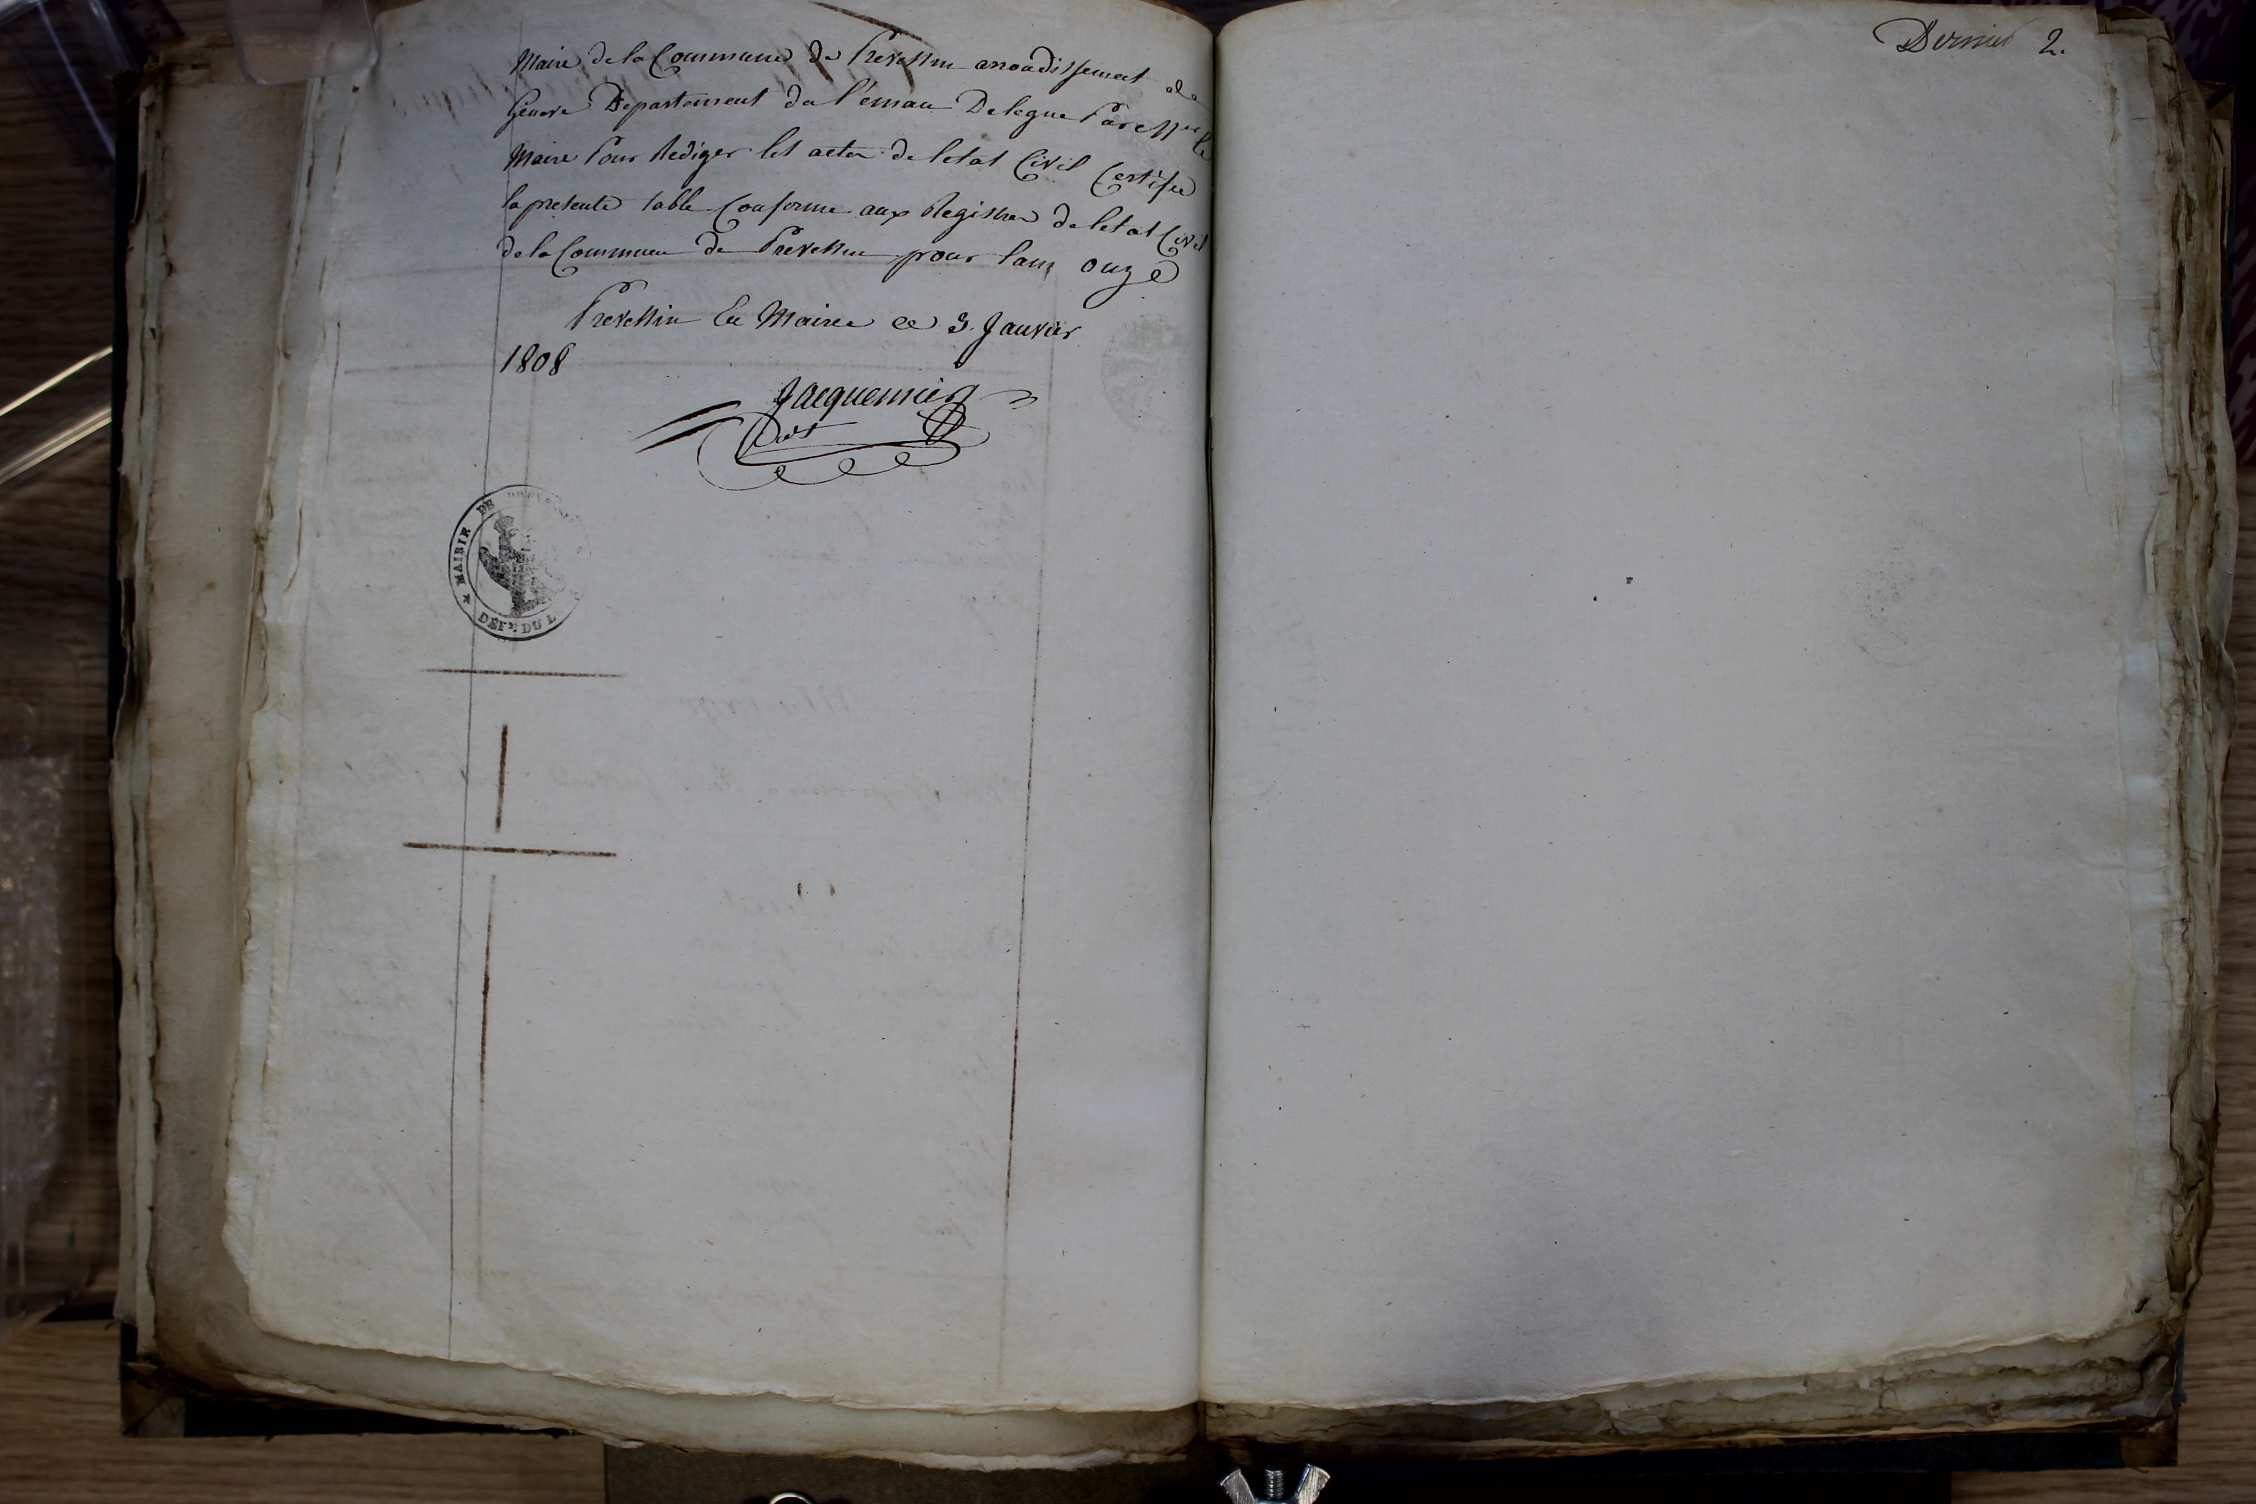 Maire de la Commune de Prevessin arrondissement de
Geneve Departement du Léman Delegue Par Mr le
Maire Pour Rediger les actes de letat Civil Certifie
la presente table Conforme aux Registres de letat Civil
de la Commune de Prevessin pour lan onze
Prevessin En Mairie ce 3. Janvier
1808
Jacquemier
MAIRIE DE
DÉPT. DU L
Dernier 2.